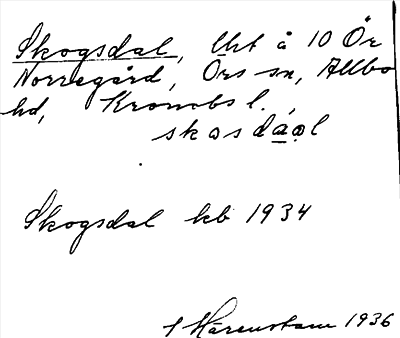 Skogsdal, lht å 10 Ör
Norregård, Örs sn, Allbo
hd, Kronobs l.
skɷsdáɷl
Skogsdal kb 1934
Härenstam 1936